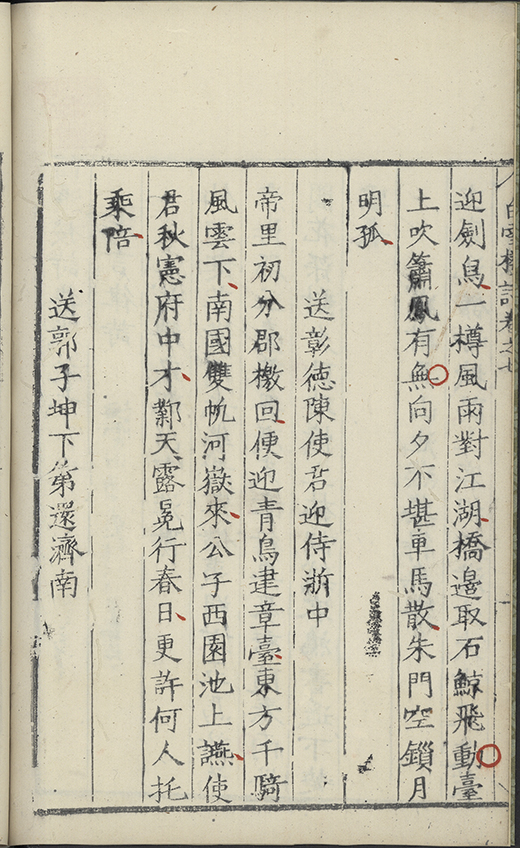 白雪樓詩卷之七
迎劍鳥一樽風雨對江湖橋邊取石鯨飛動臺
上吹簫鳳有無向夕不堪車馬散朱門空鎖月
明孤
送彰德陳使君迎侍浙中
帝里初分郡檄回便迎青鳥建章臺東方千騎
風雲下南國雙帆河嶽來公子西園池上讌使
君秋憲府中才鄴天露冕行春日更許何人托
乘陪
送郭子坤下第還濟南